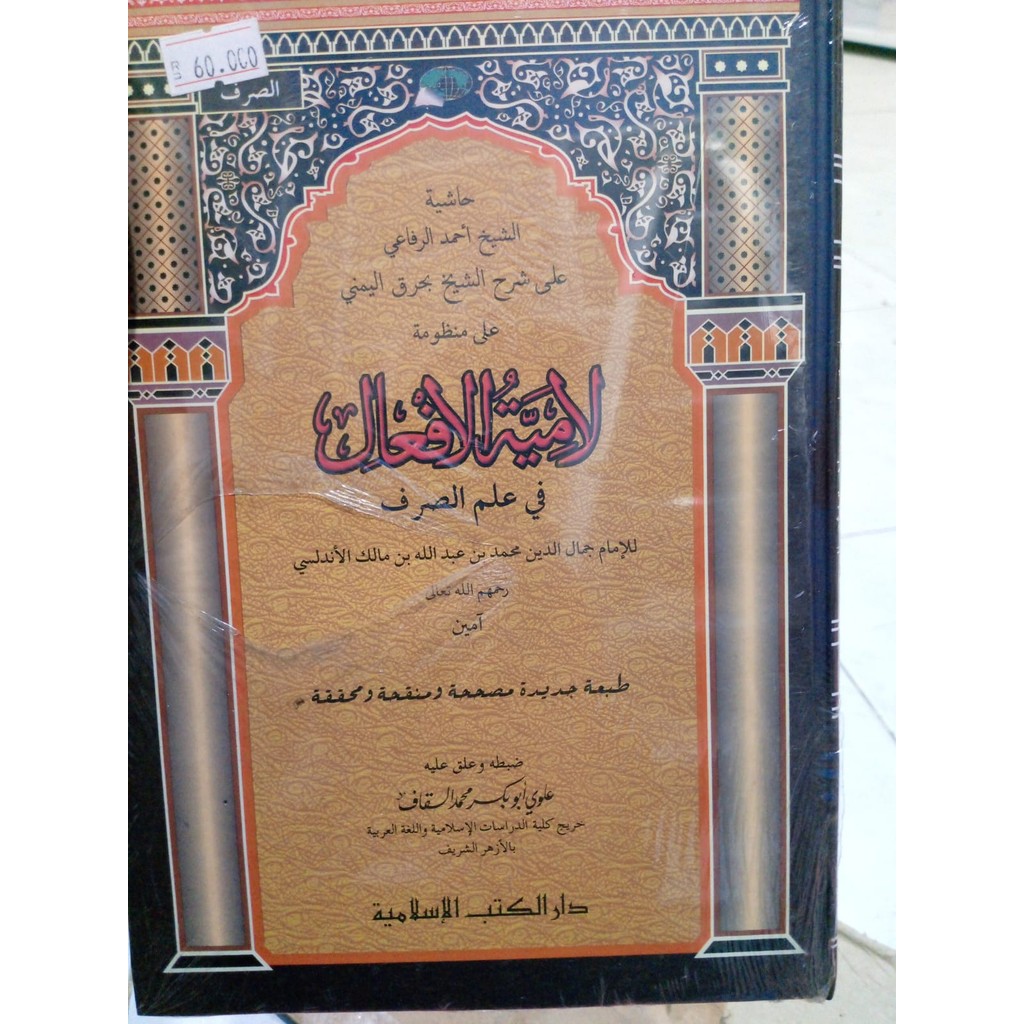 Rp 60.000
الصرف
حاشية
الشيخ أحمد الرفاعي
على شرح الشيخ بحرق اليمني
على منظومة
لامِيَّةُ الافْعَالِ
في علم الصرف
للإمام جمال الدين محمد بن عبد الله بن مالك الأندلسي
رحمهم الله تعالى
آمين
طبعة جديدة مصححة ومنقحة ومحققة
ضبطه وعلق عليه
علوي أبو بكر محمد السقاف
خريج كلية الدراسات الإسلامية واللغة العربية
بالأزهر الشريف
دار الكتب الإسلامية